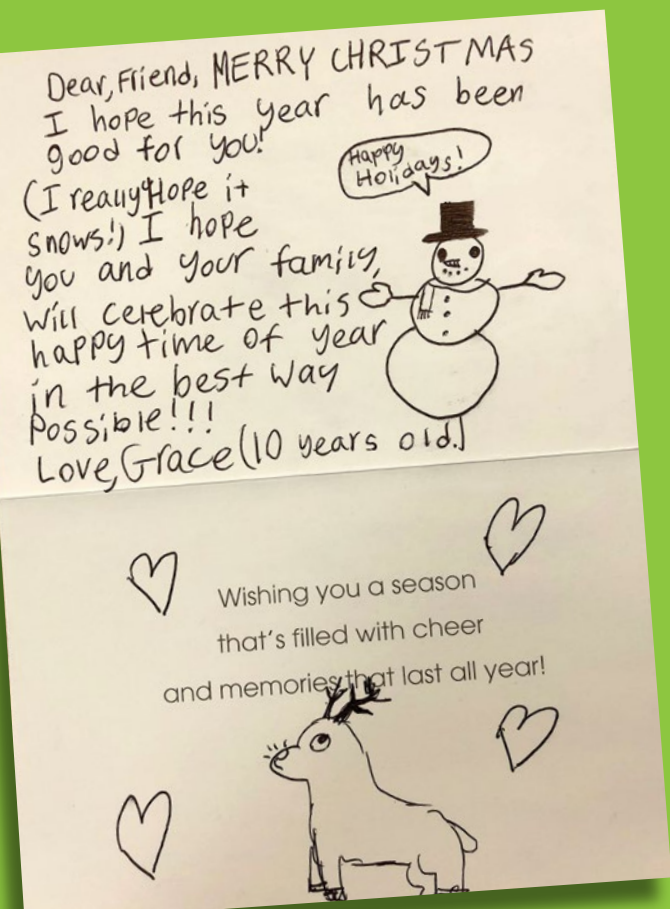 Dear, Friend, MERRY CHRISTMAS
I hope this year has been
good for you!
Happy
Holidays!
(I really Hope it
snows!) I hope
you and your family,
will celebrate this
happy time of year
in the best way
Possible!!!
Love, Grace (10 years old.)
Wishing you a season
that's filled with cheer
and memories that last all year!